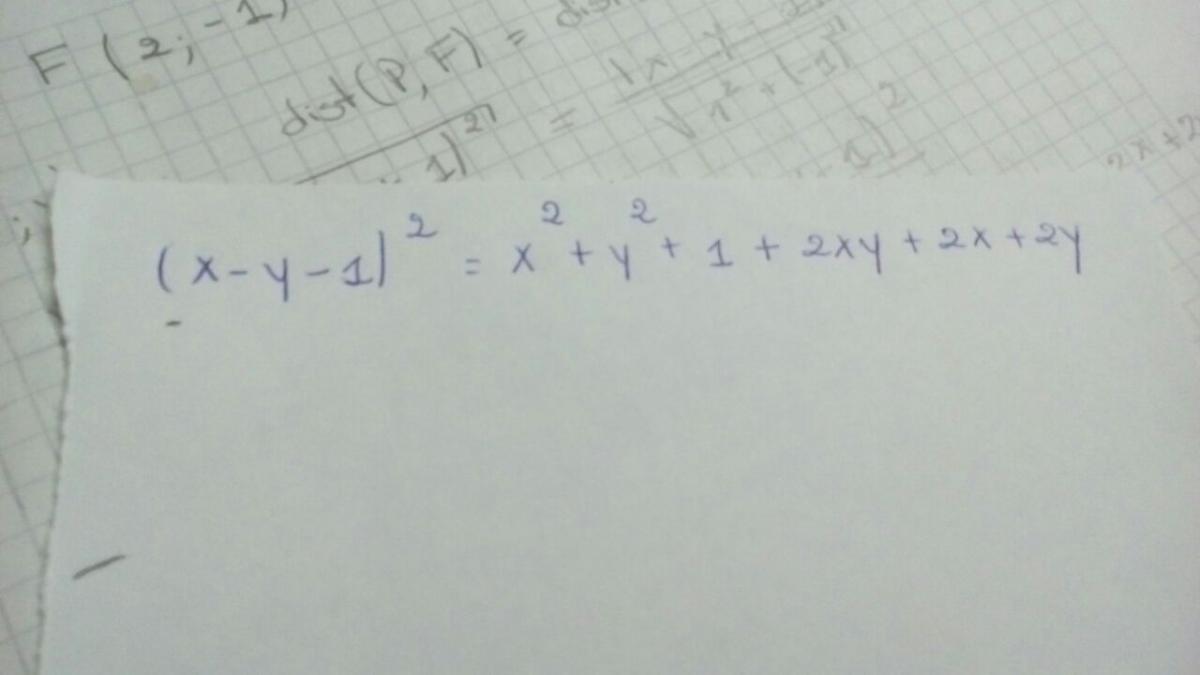 F (2; -1)
dist(P, F) =
1)² = |x - y - / √1² + (-1)²
1)²
2x +
(x - y - 1)² = x² + y² + 1 + 2xy + 2x + 2y